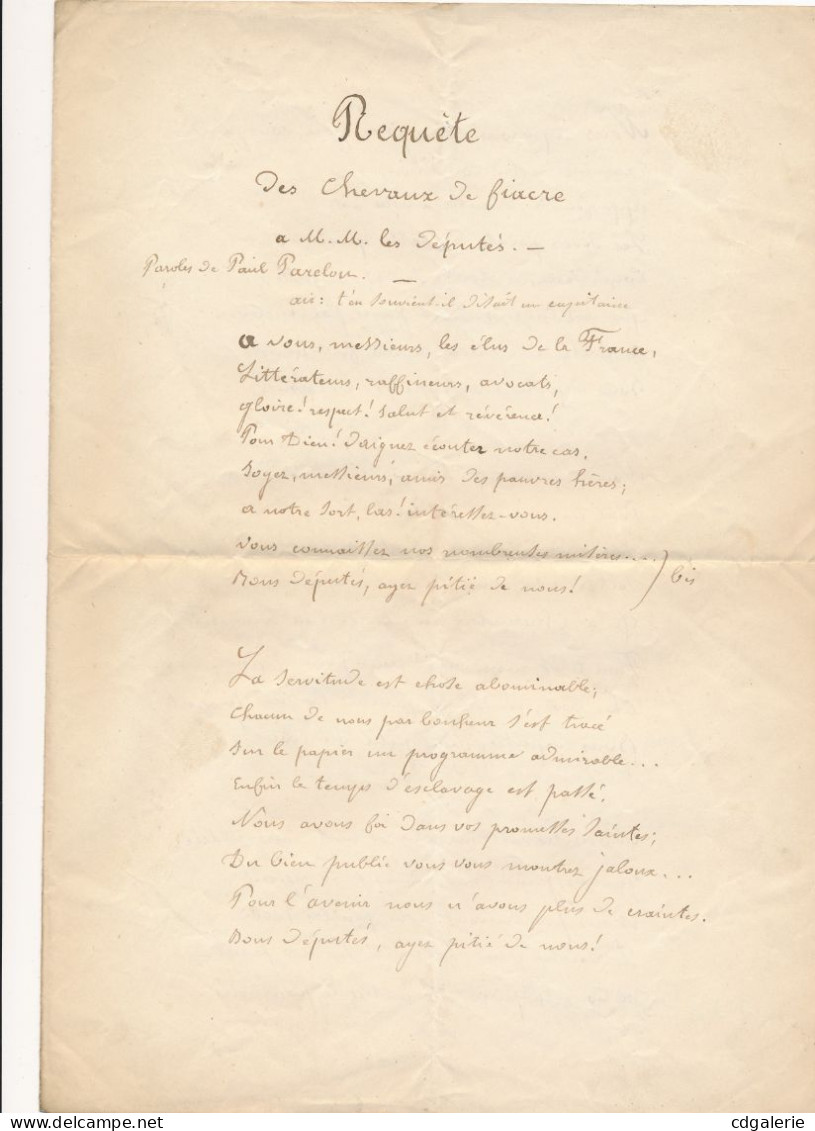 Requête
des chevaux de fiacre
a M. M. les députés. —
Paroles de Paul Parelon.
air: t'en souvient-il disait un capitaine
a vous, messieurs, les élus de la France,
Littérateurs, raffineurs, avocats,
gloire! respect! salut et révérence!
Pour Dieu! daignez écouter notre cas,
Soyez, messieurs, amis des pauvres hères;
a notre sort, las! intéressez-vous.
vous connaissez nos nombreuses misères....
Bons députés, ayez pitié de nous! ) bis
La servitude est chose abominable;
chacun de nous par bonheur s'est tracé
sur le papier un programme admirable...
Enfin le temps d'esclavage est passé.
Nous avons foi dans vos promesses saintes;
Du bien public vous vous montrez jaloux...
Pour l'avenir nous n'avons plus de craintes.
Bons députés, ayez pitié de nous!
cdgalerie